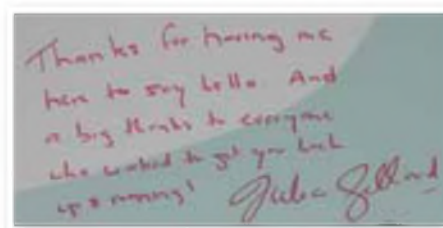 Thanks for having me
here to say hello. And
a big thanks to everyone
who worked to get you back
up & running!
Julia Gillard